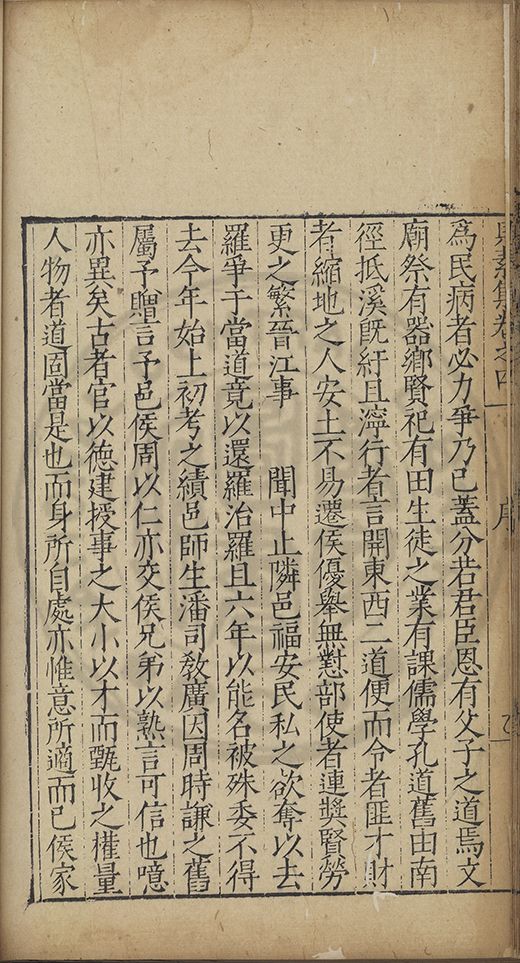 為民病者必力爭乃已蓋分若君臣恩有父子之道焉文
廟祭有器鄉賢祀有田生徒之業有課儒學孔道舊由南
徑抵溪既紆且濘行者言開東西二道便而令者匪才財
者縮地之人安土不易遷侯優舉無懟部使者連獎賢勞
更之繁晉江事 聞中止隣邑福安民私之欲奪以去
羅爭于當道竟以還羅治羅且六年以能名被殊委不得
去今年始上初考之績邑師生潘司教廣因周時謙之舊
屬予贈言予邑侯周以仁亦交侯兄弟以熟言可信也噫
亦異矣古者官以德建授事之大小以才而甄收之權量
人物者道固當是也而身所自處亦惟意所適而已侯家